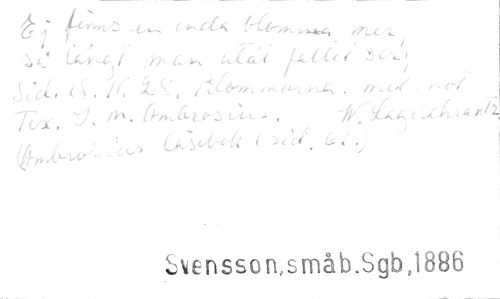 Ej finns en enda blomma mer,
så långt man utåt fältet ser;
Sid. 18. N. 28. Blommorna. med not
Tex. J. M. Ambrosius. W. Lagercrantz
(Ambrosius läsebok 1 sid. 61.)
Svensson,småb.Sgb,1886